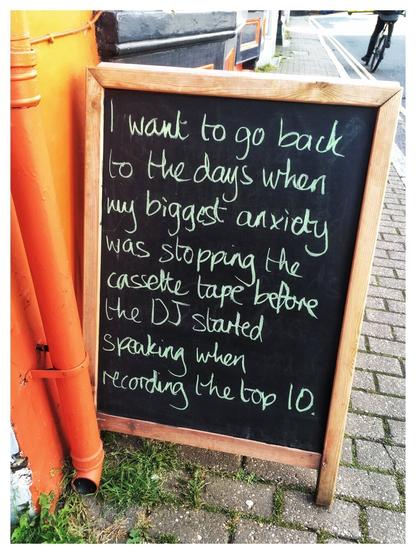 I want to go back
to the days when
my biggest anxiety
was stopping the
cassette tape before
the DJ started
speaking when
recording the top 10.